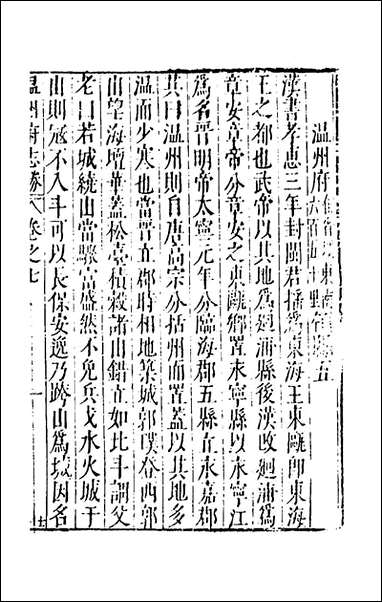 温州府 東南 領縣五
漢書孝惠三年封閩君搖爲東海王東甌卽東海
王之都也武帝以其地爲廻浦縣後漢改廻浦爲
章安章帝分章安之東甌鄉置永寧縣以永寧江
爲名晉明帝太寧元年分臨海郡五縣立永嘉郡
其曰温州則自唐高宗分括州而置蓋以其地多
温而少寒也當晉立郡時相地築城郭璞登西郭
山望海壇華蓋松臺積穀諸山錯立如北斗謂父
老曰若城繞山當驟富盛然不免兵戈水火城于
山則寇不入斗可以長保安逸乃跨山爲城因名
温州府志勝 卷之七 一